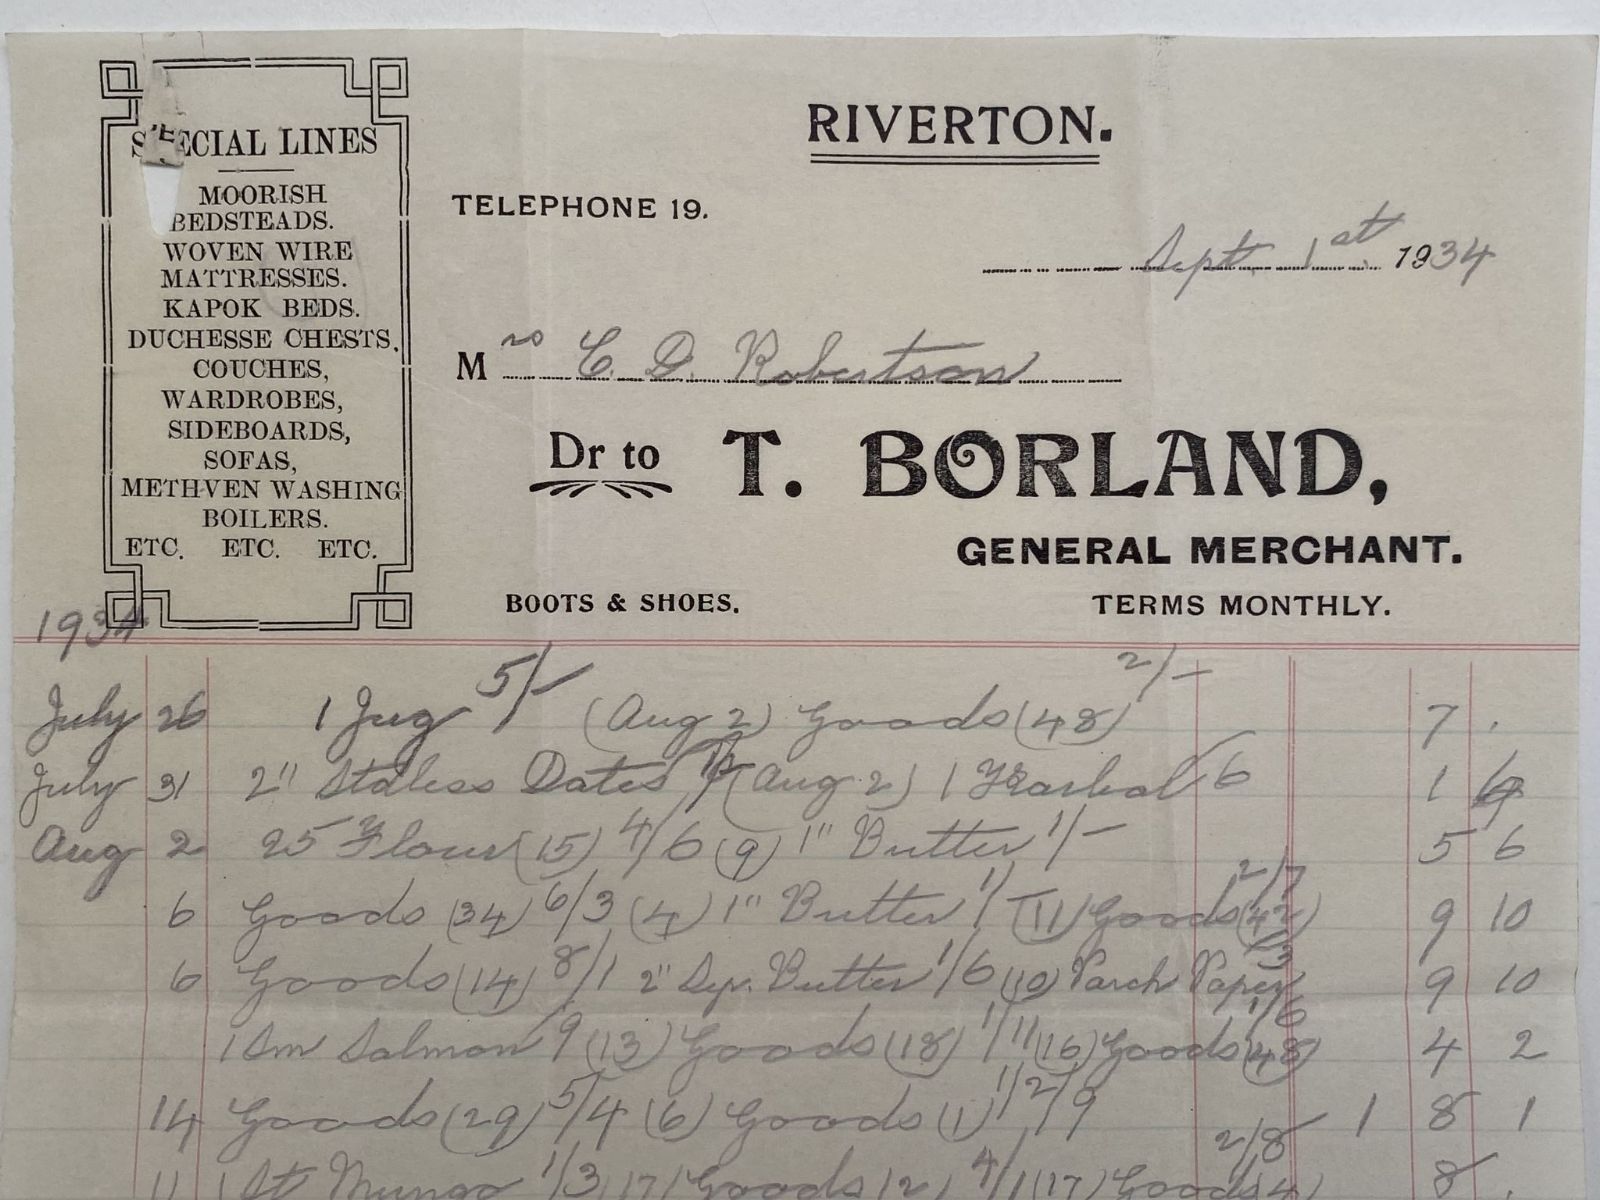 SPECIAL LINES
MOORISH
BEDSTEADS.
WOVEN WIRE
MATTRESSES.
KAPOK BEDS.
DUCHESSE CHESTS.
COUCHES,
WARDROBES,
SIDEBOARDS,
SOFAS,
METHVEN WASHING
BOILERS.
ETC. ETC. ETC.
RIVERTON.
TELEPHONE 19.
Sept. 1st 1934
Mrs C. D. Robertson
Dr to T. BORLAND,
GENERAL MERCHANT.
BOOTS & SHOES. TERMS MONTHLY.
1934
July 26 1 Jug 5/- (Aug 2) Goods (48) 2/- 7 .
July 31 2" Stoless Dates (Aug 2) 1 6 1 6
Aug 2 25 Flour (15) 4/6 (9) 1" Butter 1/- 5 6
6 Goods (34) 6/3 (4) 1" Butter 1/ (11) Goods (42) 2/7 9 10
6 Goods (14) 8/1 2" Butter 1/6 (10) Parch Paper /3 9 10
1 Sm Salmon 9 (13) Goods (18) 1/11 (16) Goods (48) 1/6 4 2
14 Goods (29) 5/4 (6) Goods (1) 1 8 1
11 1 St Mungo 1/3 (17) Goods 4/1 (17) Goods 2/8 8 .